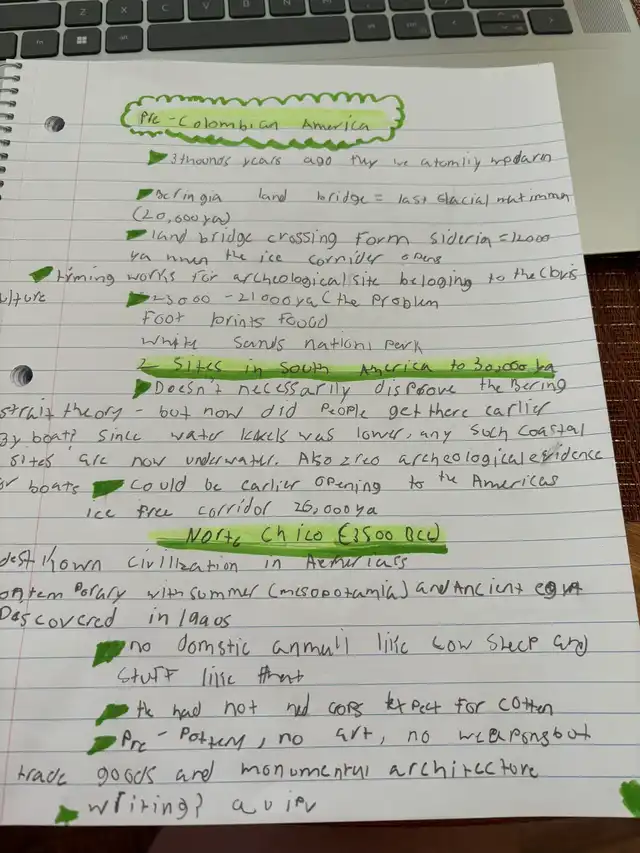 Pre-Colombian America
3 thounds years ago they we atomliy
Beringia land bridge = last glacial
(20,000 ya)
land bridge crossing form sideria = 12000
ya when the ice corrider opens
timing works for archeological site beloging to the clovis
ulture
23000 - 21000 ya (the problem
foot prints found
white sands nationl perk
2 Sites in South America to 30,000 ya
Doesn't necessarily disprove the Bering
strait theory - but now did people get there earlier
By boat? since water levels was lower, any such coastal
sites are now underwater. Also zreo archeological evidence
or boats Could be earlier opening to the Americas
ice free corridor 26,000 ya
Norte Chico (3500 BCE)
dest known civilization in
ontem porary with summer (mesopotamia) and Ancient
Discovered in 1990s
no domstic anmull like cow sheep and
stuff like that
had not ned expect for cotten
Pre-Pottery, no art, no weapons but
trade goods and monumental architecture
writing?